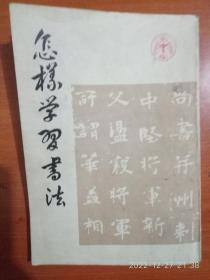 怎樣学習書法
尚書并州刺
中堅將軍新
父盪寇將軍
所謂華益相
2022-12-27 21:38